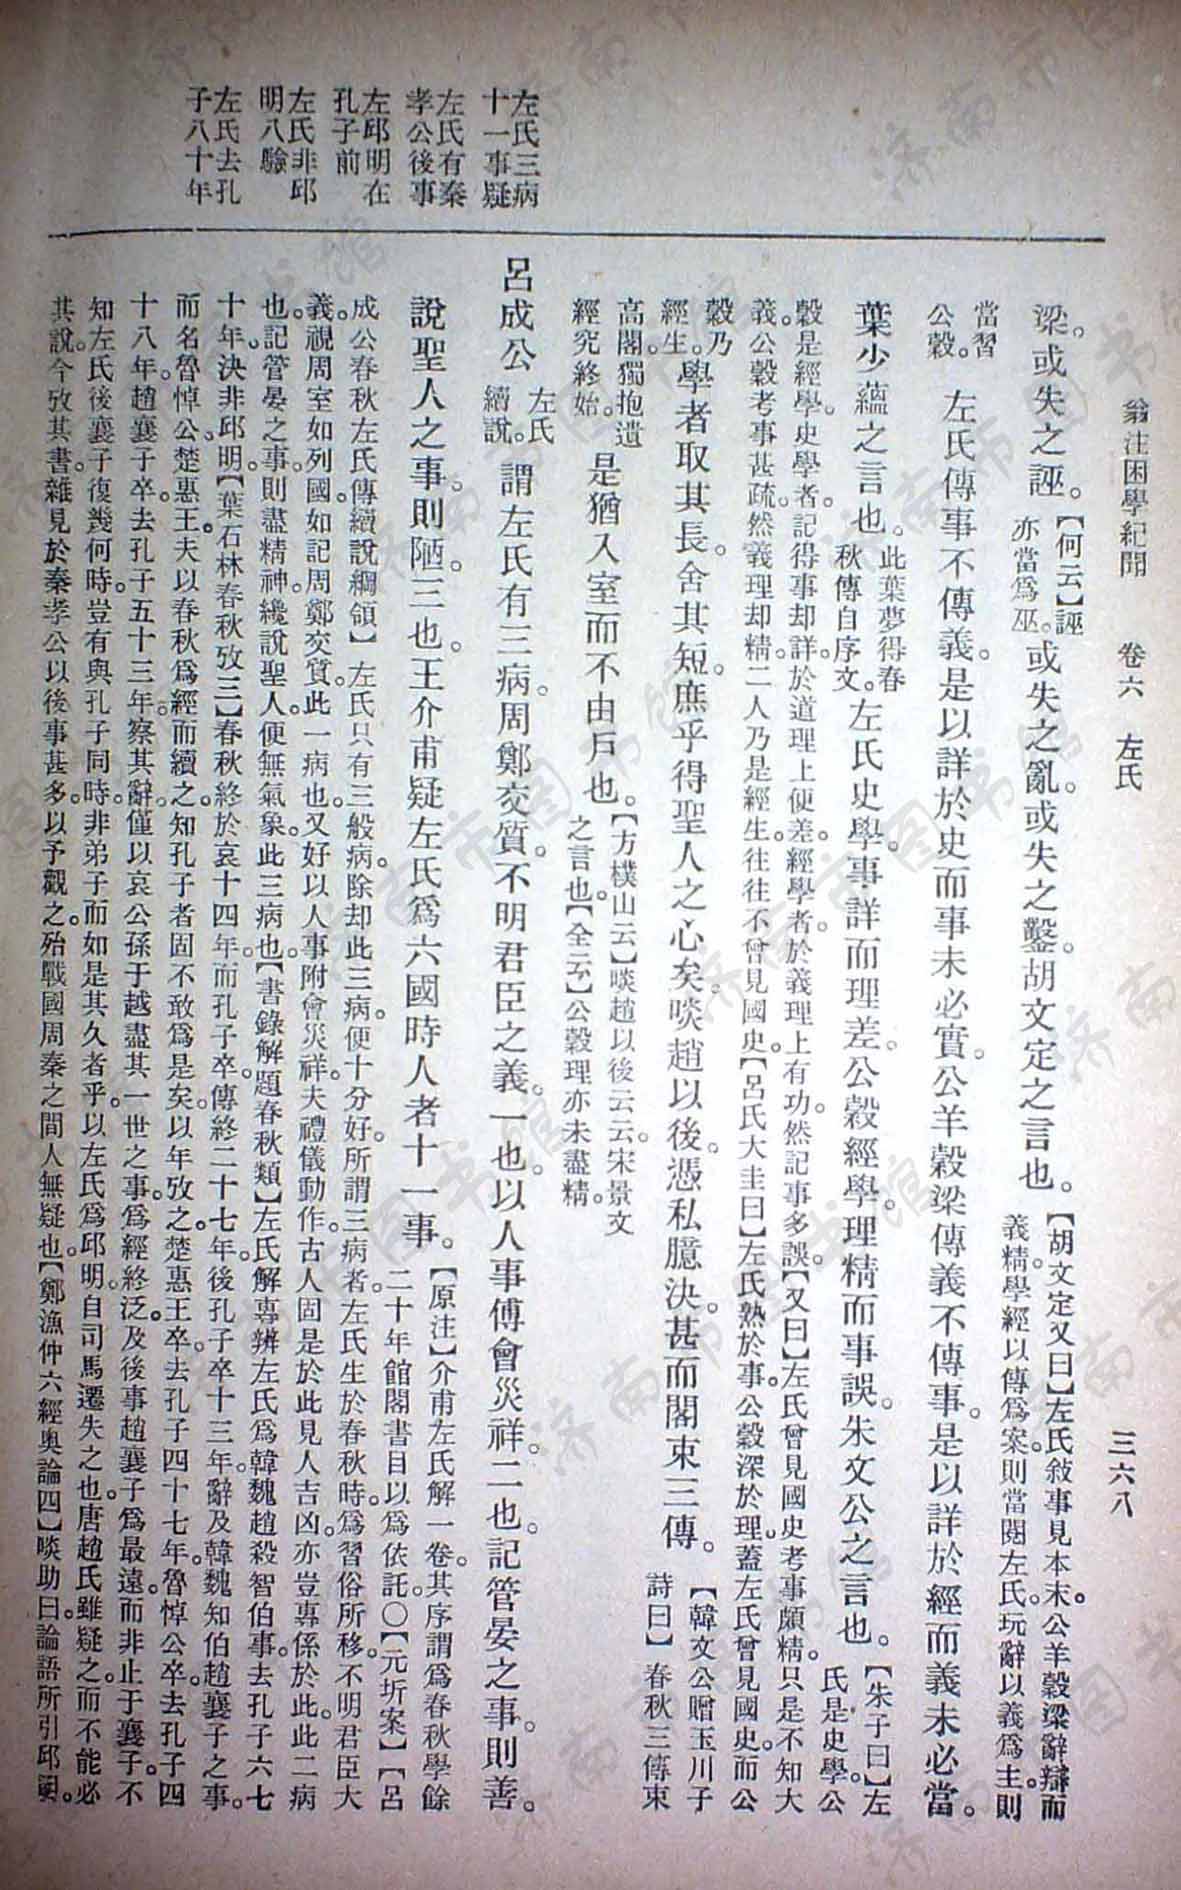 翁注困學紀聞　卷六　左氏　三六八
左氏三病
十一事疑
左氏有秦
孝公後事
左邱明在
孔子前
左氏非邱
明八驗
左氏去孔
子八十年
梁。或失之誣。【何云】誣亦當爲巫。或失之亂。或失之鑿。胡文定之言也。【胡文定又曰】左氏敍事見本末。公羊穀梁辭辯而義精。學經以傳爲案。則當閱左氏。玩辭以義爲主。則
當習公穀。左氏傳事不傳義。是以詳於史而事未必實。公羊穀梁傳義不傳事。是以詳於經而義未必當。
葉少蘊之言也。此葉夢得春秋傳自序文。左氏史學。事詳而理差。公穀經學。理精而事誤。朱文公之言也。【朱子曰】左氏是史學。公
穀是經學。史學者。記得事却詳。於道理上便差。經學者。於義理上有功。然記事多誤。【又曰】左氏曾見國史。考事頗精。只是不知大
義。公穀考事甚疏。然義理却精。二人乃是經生。往往不曾見國史。【呂氏大圭曰】左氏熟於事。公穀深於理。蓋左氏曾見國史。而公
穀乃經生。學者取其長。舍其短。庶乎得聖人之心矣。啖趙以後。憑私臆決。甚而閣束三傳。【韓文公贈玉川子詩曰】春秋三傳束
高閣。獨抱遺經究終始。是猶入室而不由戶也。【方樸山云】啖趙以後云云。宋景文之言也。【全云】公穀理亦未盡精。
呂成公左氏續說。謂左氏有三病。周鄭交質。不明君臣之義。一也。以人事傅會災祥。二也。記管晏之事。則善。
說聖人之事。則陋。三也。王介甫疑左氏爲六國時人者十一事。【原注】介甫左氏解一卷。其序謂爲春秋學餘二十年。館閣書目以爲依託。〇【元圻案】【呂
成公春秋左氏傳續說綱領】左氏只有三般病。除却此三病。便十分好。所謂三病者。左氏生於春秋時。爲習俗所移。不明君臣大
義。視周室如列國。如記周鄭交質。此一病也。又好以人事附會災祥。夫禮儀動作。古人固是於此見人吉凶。亦豈專係於此。此二病
也。記管晏之事。則盡精神。纔說聖人。便無氣象。此三病也。【書錄解題春秋類】左氏解專辨左氏爲韓魏趙殺智伯事。去孔子六七
十年。決非邱明。【葉石林春秋攷三】春秋終於哀十四年。而孔子卒。傳終二十七年。後孔子卒十三年。辭及韓魏知伯趙襄子之事。
而名魯悼公。楚惠王。夫以春秋爲經而續之。知孔子者固不敢爲是矣。以年攷之。楚惠王卒。去孔子四十七年。魯悼公卒。去孔子四
十八年。趙襄子卒。去孔子五十三年。察其辭。僅以哀公孫于越。盡其一世之事。爲經終。泛及後事。趙襄子爲最遠。而非止于襄子。不
知左氏後襄子復幾何時。豈有與孔子同時。非弟子而如是其久者乎。以左氏爲邱明。自司馬遷失之也。唐趙氏雖疑之。而不能必
其說。今攷其書。雜見於秦孝公以後事甚多。以予觀之。殆戰國周秦之間人無疑也。【鄭漁仲六經奧論四】啖助曰。論語所引邱明。